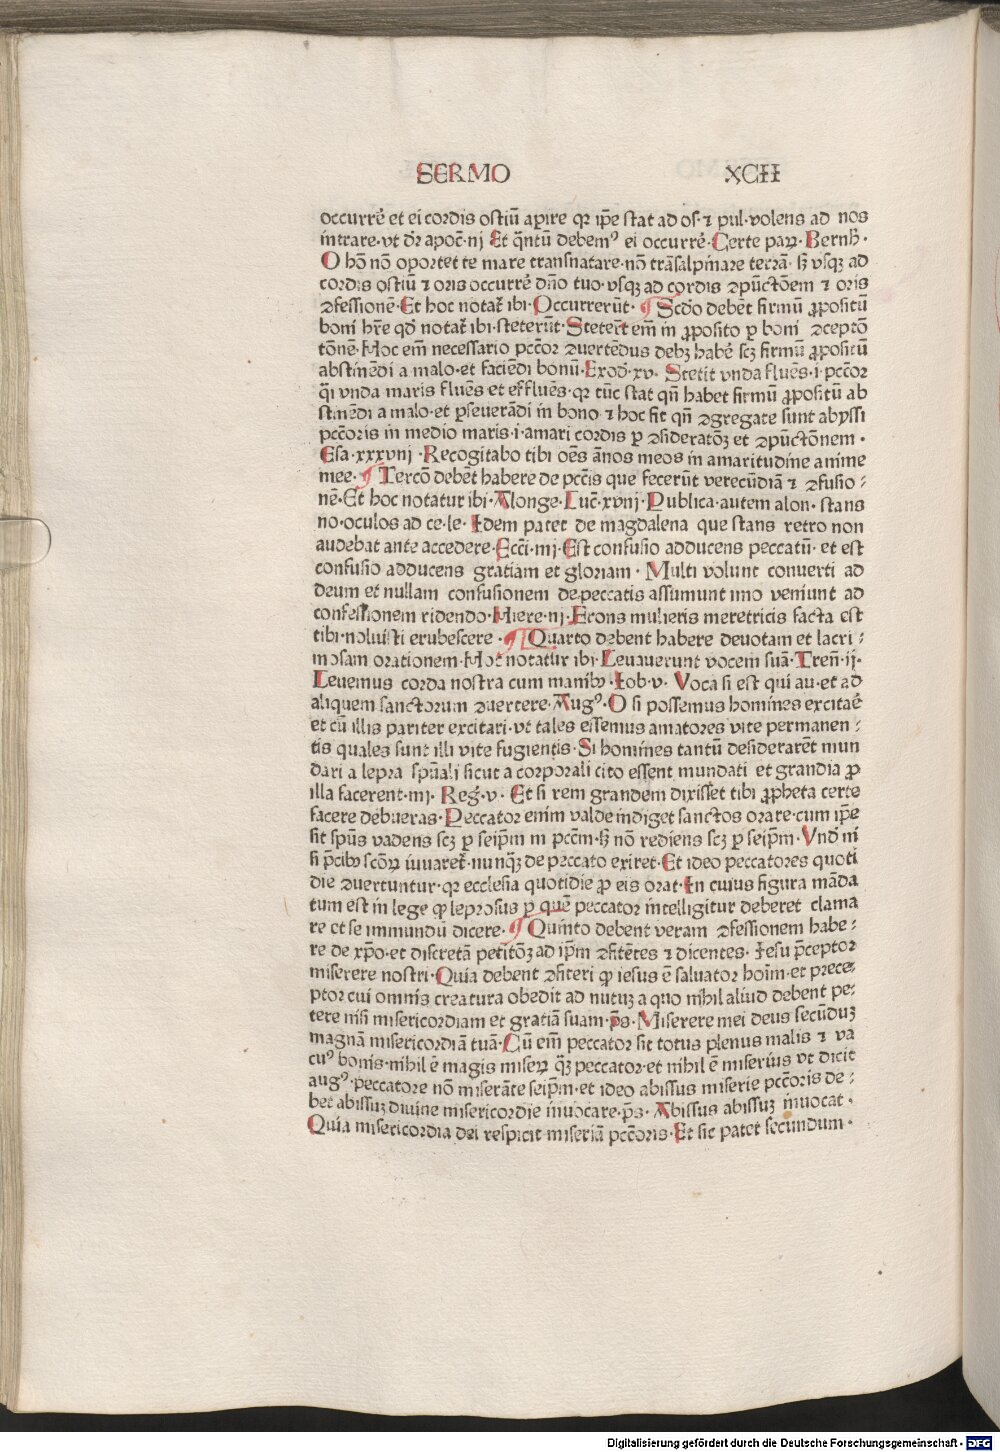 SERMO XCII
occurrē et ei cordis ostiū aꝑire qꝛ ip̄e stat ad os· ⁊ pul· volens ad nos
intrare· vt dr̄ apoc̄· iij Et q̄ntū debemꝰ ei occurrē· Certe paꝝ· Bernh̄·
O hō nō oportet te mare transnatare· nō trāsalpinare terrā· sꝫ vsqꝫ ad
cordis ostiū ⁊ oris occurrē dn̄o tuo· vsqꝫ ad cordis ꝯpūctōem ⁊ oris
ꝯfessionē· Et hoc notat̄ ibi· Occurrerūt· ¶ Scd̄o debēt firmū ꝓpositū
boni hr̄e qd̄ notat̄ ibi· steterūt· Steter̄t em̄ in ꝓposito ꝑ boni ꝯceptō
tōnē· Hoc em̄ necessario pcc̄or ꝯuertēdus debꝫ habē scꝫ firmū ꝓpositū
abstinēdi a malo· et faciēdi bonū· Exod̄· xv· Stetit vnda fluēs· i· pcc̄or
q̄i vnda maris fluēs et effluēs· qꝛ tūc stat qn̄ habet firmū ꝓpositū ab
stinēdi a malo· et ꝑseuerādi in bono· ⁊ hoc fit qn̄ ꝯgregate sunt abyssi
pcc̄oris in medio maris· i· amari cordis ꝑ ꝯsideratōꝫ et ꝯpūctōnem·
Esa· xxxviij· Recogitabo tibi oēs ānos meos in amaritudine anime
mee· ¶ Tercō debēt habere de pcc̄is que fecerūt verecūdiā ⁊ ꝯfusio⸗
nē· Et hoc notatur ibi· Alonge· Luc̄· xviij· Publica· autem alon· stans
no· oculos ad ce· le· Idem patet de magdalena que stans retro non
audebat ante accedere· Ecci· iiij· Est confusio adducens peccatū· et est
confusio adducens gratiam et gloriam· Multi volunt conuerti ad
deum et nullam confusionem de peccatis assumunt imo veniunt ad
confessionem ridendo· Hiere· iij· Frons mulieris meretricis facta est
tibi· noluisti erubescere· ¶ Quarto debent habere deuotam et lacri⸗
mosam orationem· Hoc notatur ibi· Leuauerunt vocem suā· Tren̄· ii·
Leuemus corda nostra cum manibꝰ· Iob· v· Voca si est qui au· et ad
aliquem sanctorum ꝯuertere· Augꝰ· O si possemus homines excitaē
et cū illis pariter excitari· vt tales essemus amatores vite permanen⸗
tis quales sunt illi vite fugientis· Si homines tantū desiderarēt mun
dari a lepra spūali sicut a corporali cito essent mundati et grandia ꝓ
illa facerent· iiij· Reḡ· v· Et si rem grandem dixisset tibi ꝓpheta certe
facere debueras· Peccator enim valde indiget sanctos orare· cum ip̄e
sit spūs vadens scꝫ ꝑ seip̄m in pcc̄m· sꝫ nō rediens scꝫ ꝑ seip̄m· Vnd̄ ni
si p̄cibꝰ scōꝝ iuuaret̄· nunqꝫ de peccato exiret· Et ideo peccatores quoti
die ꝯuertuntur· qꝛ ecclesia quotidie ꝓ eis orat· In cuius figura māda
tum est in lege qꝙ leprosus ꝑ quē peccator intelligitur deberet clama
re et se immundū dicere· ¶ Quinto debent veram ꝯfessionem habe⸗
re de xp̄o· et discretā petitōꝫ ad ip̄m ꝯfitētes ⁊ dicentes· Iesu p̄ceptor
miserere nostri· Quia debent ꝯfiteri ꝙ iesus ē saluator hoīm· et prece⸗
ptor cui omnis creatura obedit ad nutuꝫ a quo nihil aliud debent pe⸗
tere nisi misericordiam et gratiā suam· p̄s· Miserere mei deus secūduꝫ
magnā misericordiā tuā· Cū em̄ peccator sit totus plenus malis ⁊ va
cuꝰ bonis· nihil ē magis miseꝝ qꝫ peccator· et nihil ē miserius vt dicit
augꝰ· peccatore nō miserāte seip̄m· et ideo abissus miserie pcc̄oris de⸗
bet abissuꝫ diuine misericordie inuocare· p̄s· Abissus abissuꝫ inuocat·
Quia misericordia dei respicit miseriā pcc̄oris· Et sic patet secundum·
Digitalisierung gefördert durch die Deutsche Forschungsgemeinschaft · DFG